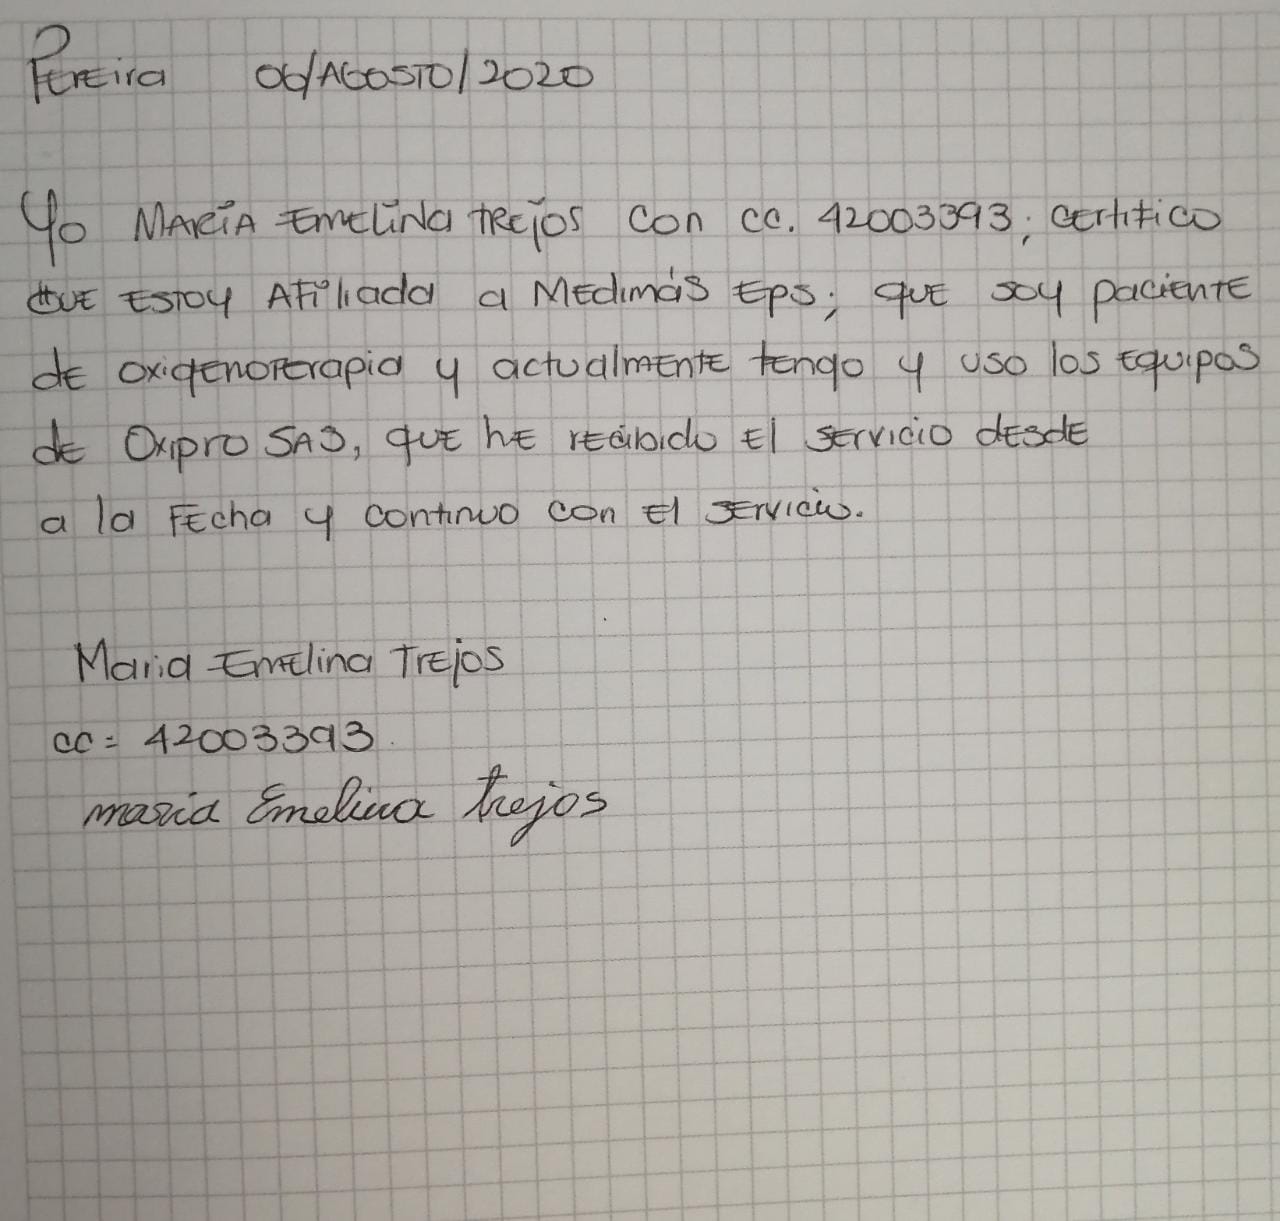 Pereira 06/AGOSTO/2020
Yo MARÍA Emelina trejos con cc. 42003393; certifico
que Estoy Afiliada a Medimás Eps; que soy paciente
de oxigenoterapia y actualmente tengo y uso los Equipos
de Oxipro SAS, que he recibido el servicio desde
a la Fecha y continuo con el servicio.
Maria Emelina Trejos
cc = 42003393.
maria Emelina trejos